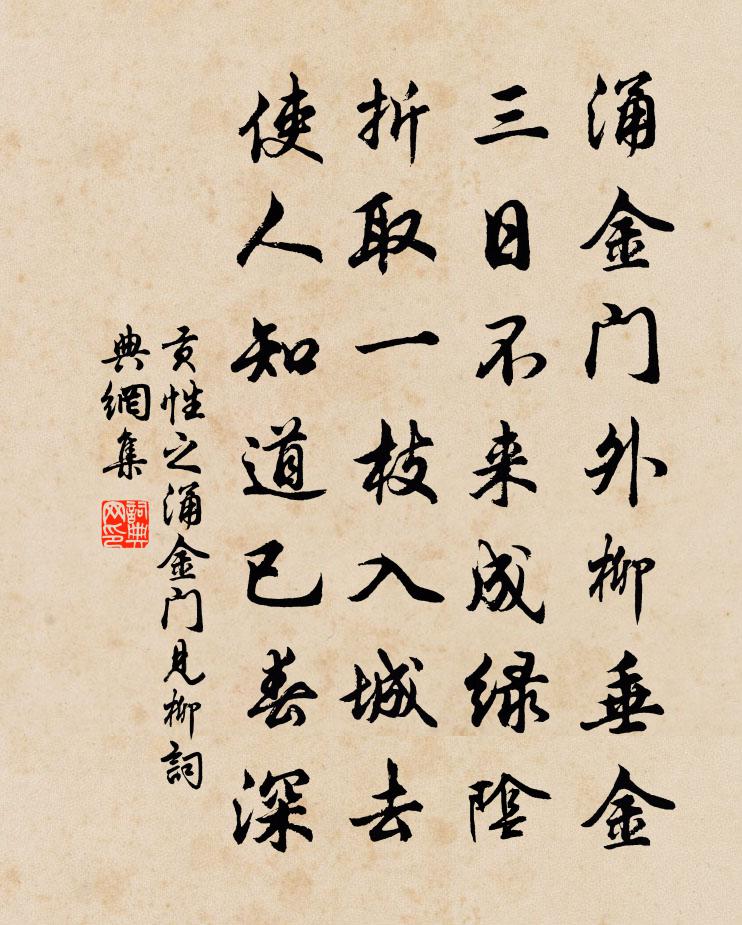 涌金门外柳垂金
三日不来成绿陰
折取一枝入城去
使人知道已春深
贡性之涌金门見柳詞
典網集
詞典网印